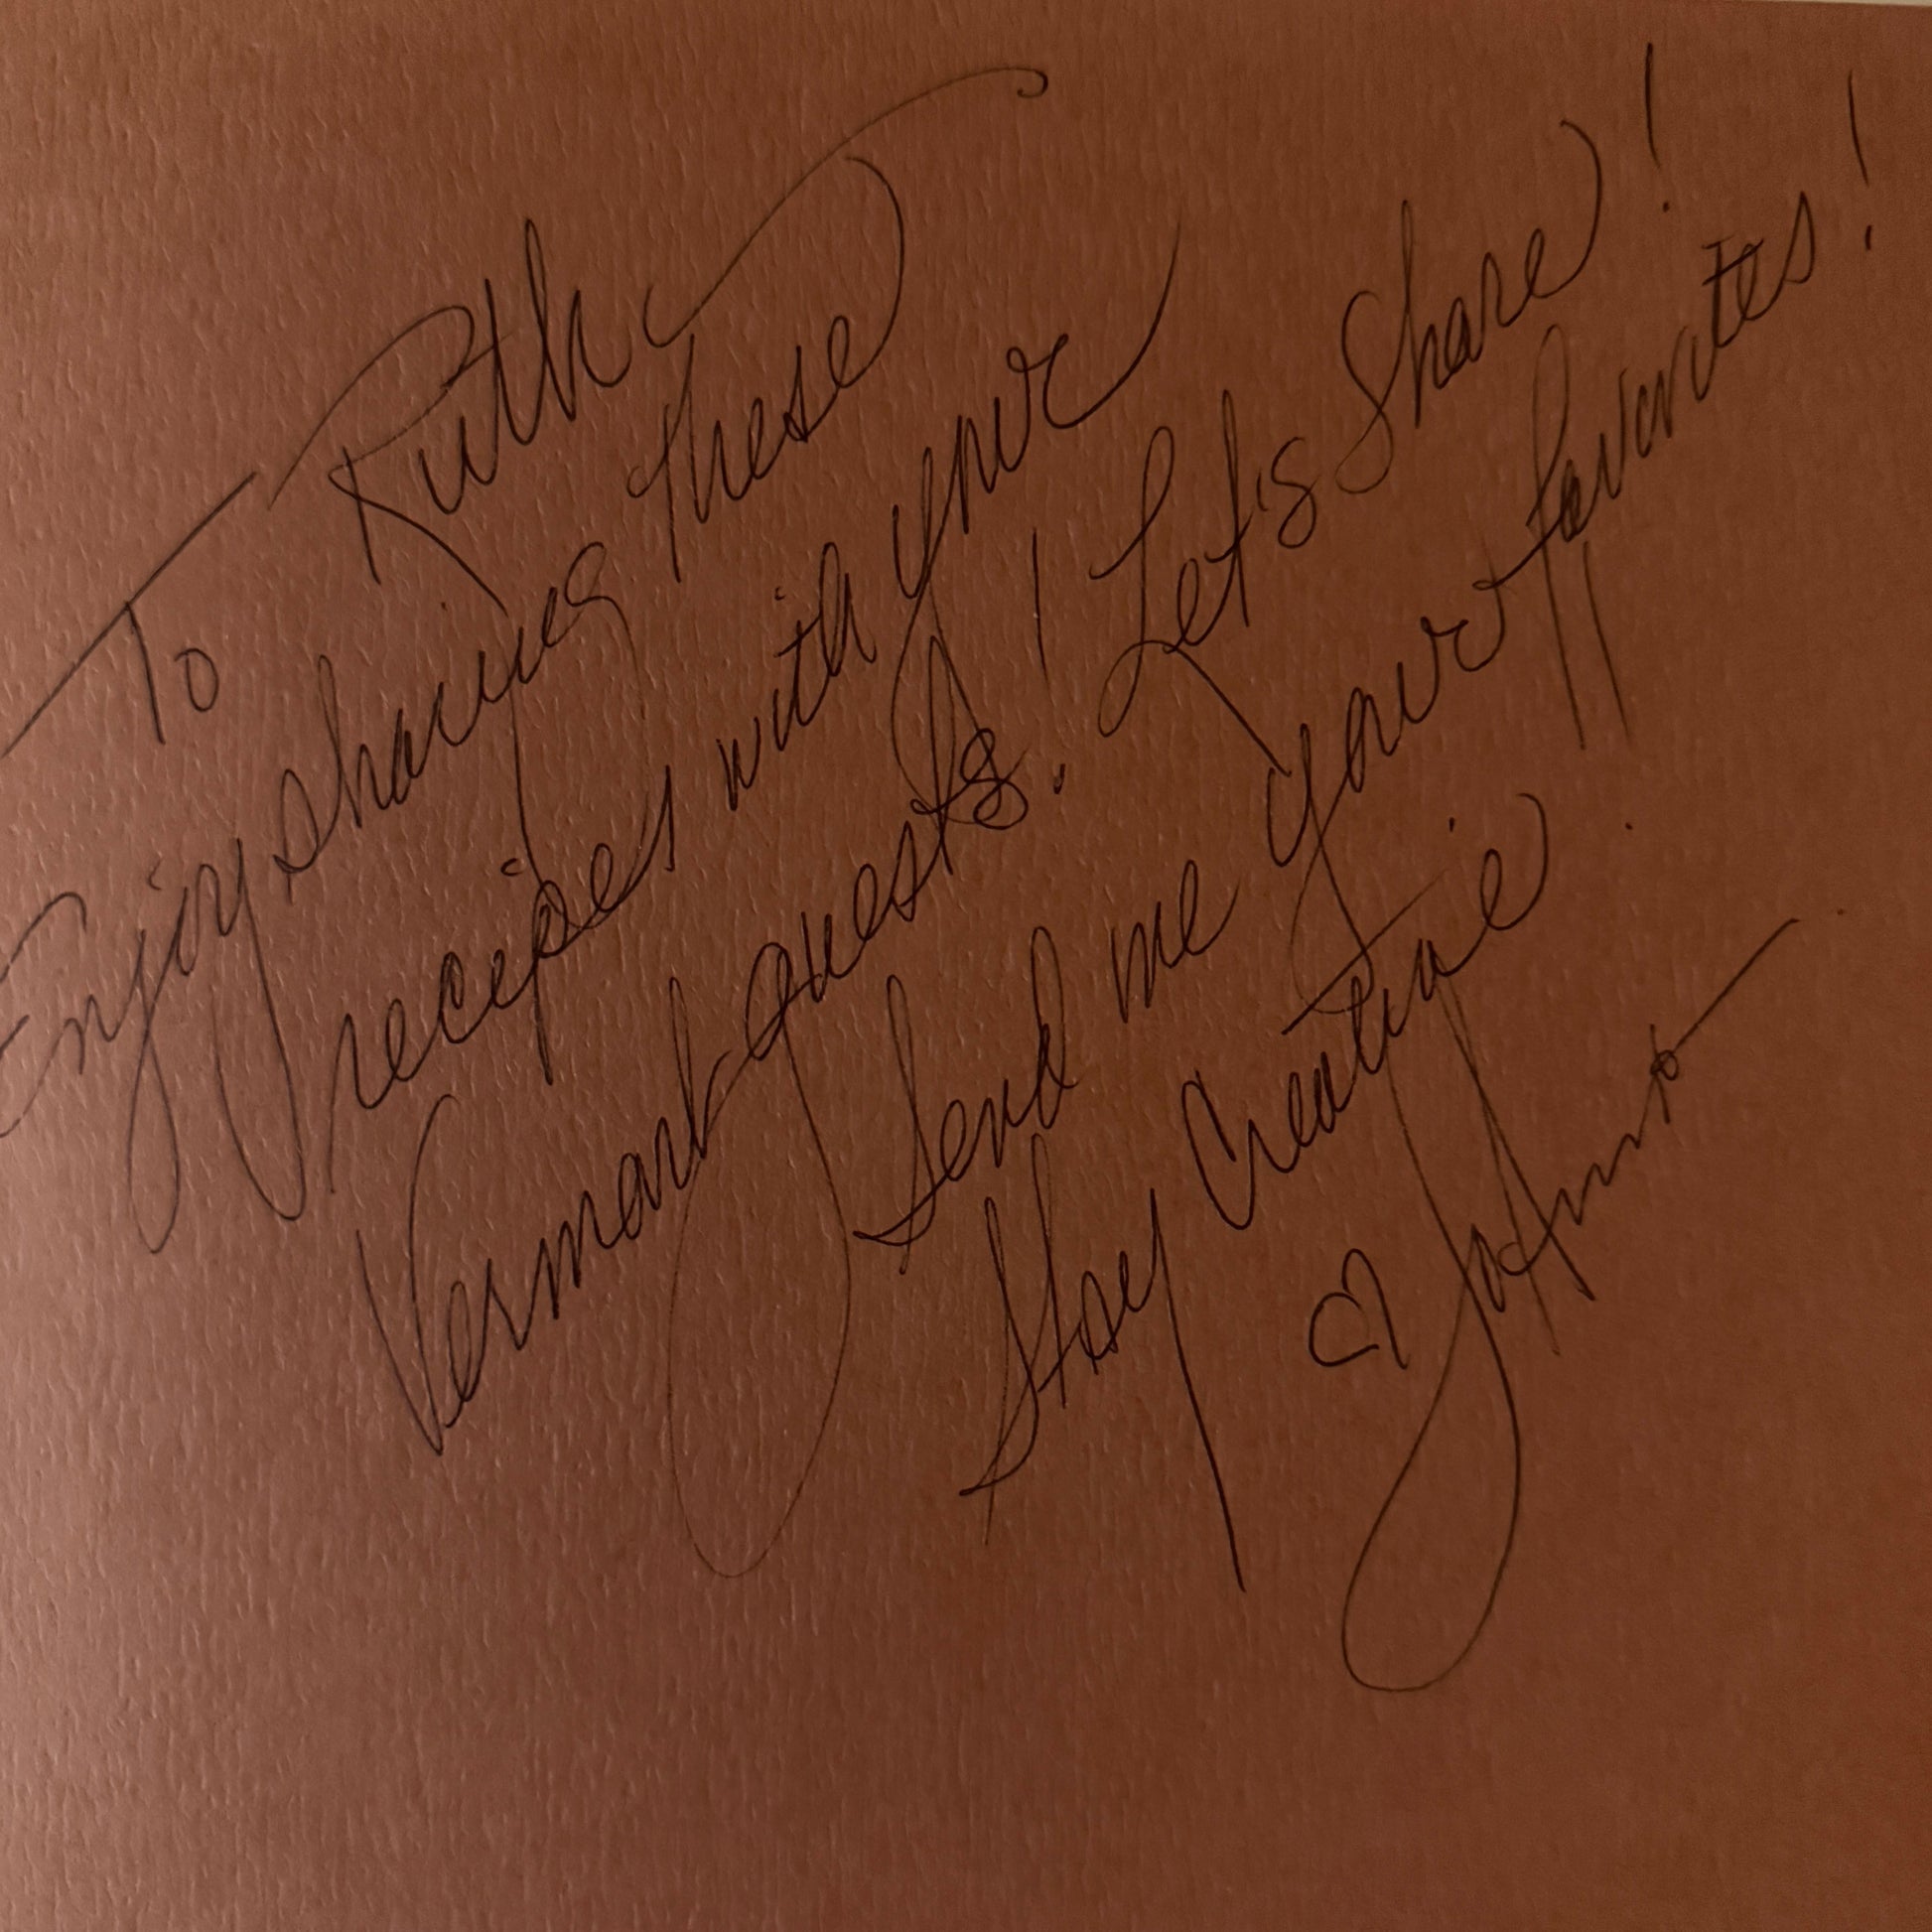 To Ruth
Enjoy sharing these
recipes with your
Vermont guests! Let's Share!
Send me your favorites!
Stay Creative
♡ JoAnna